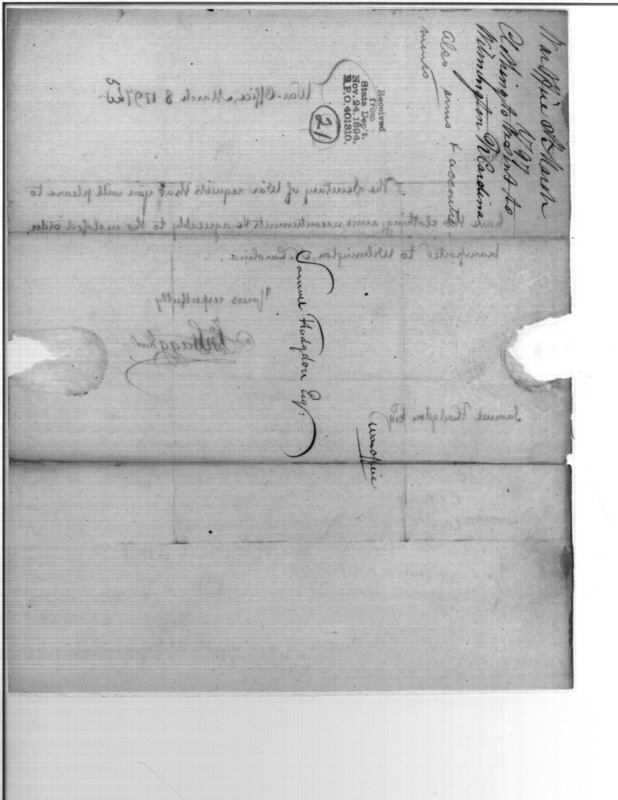 War Office 8th March
1797
Clothing to be sent to
Wilmington N Carolina
Also arms & accoutre
ments
Received
from
State Dep't.
Nov. 24, 1894.
R.P.O. 401310.
21
Samuel Hodgdon Esqr:
War Office
War Office, March 8 1797
The Secretary of War requests that you will please to
have the clothing, arms accoutrements &c agreeably to the inclosed order,
transported to Wilmington, N. Carolina.
Yours respectfully
Samuel Hodgdon Esq